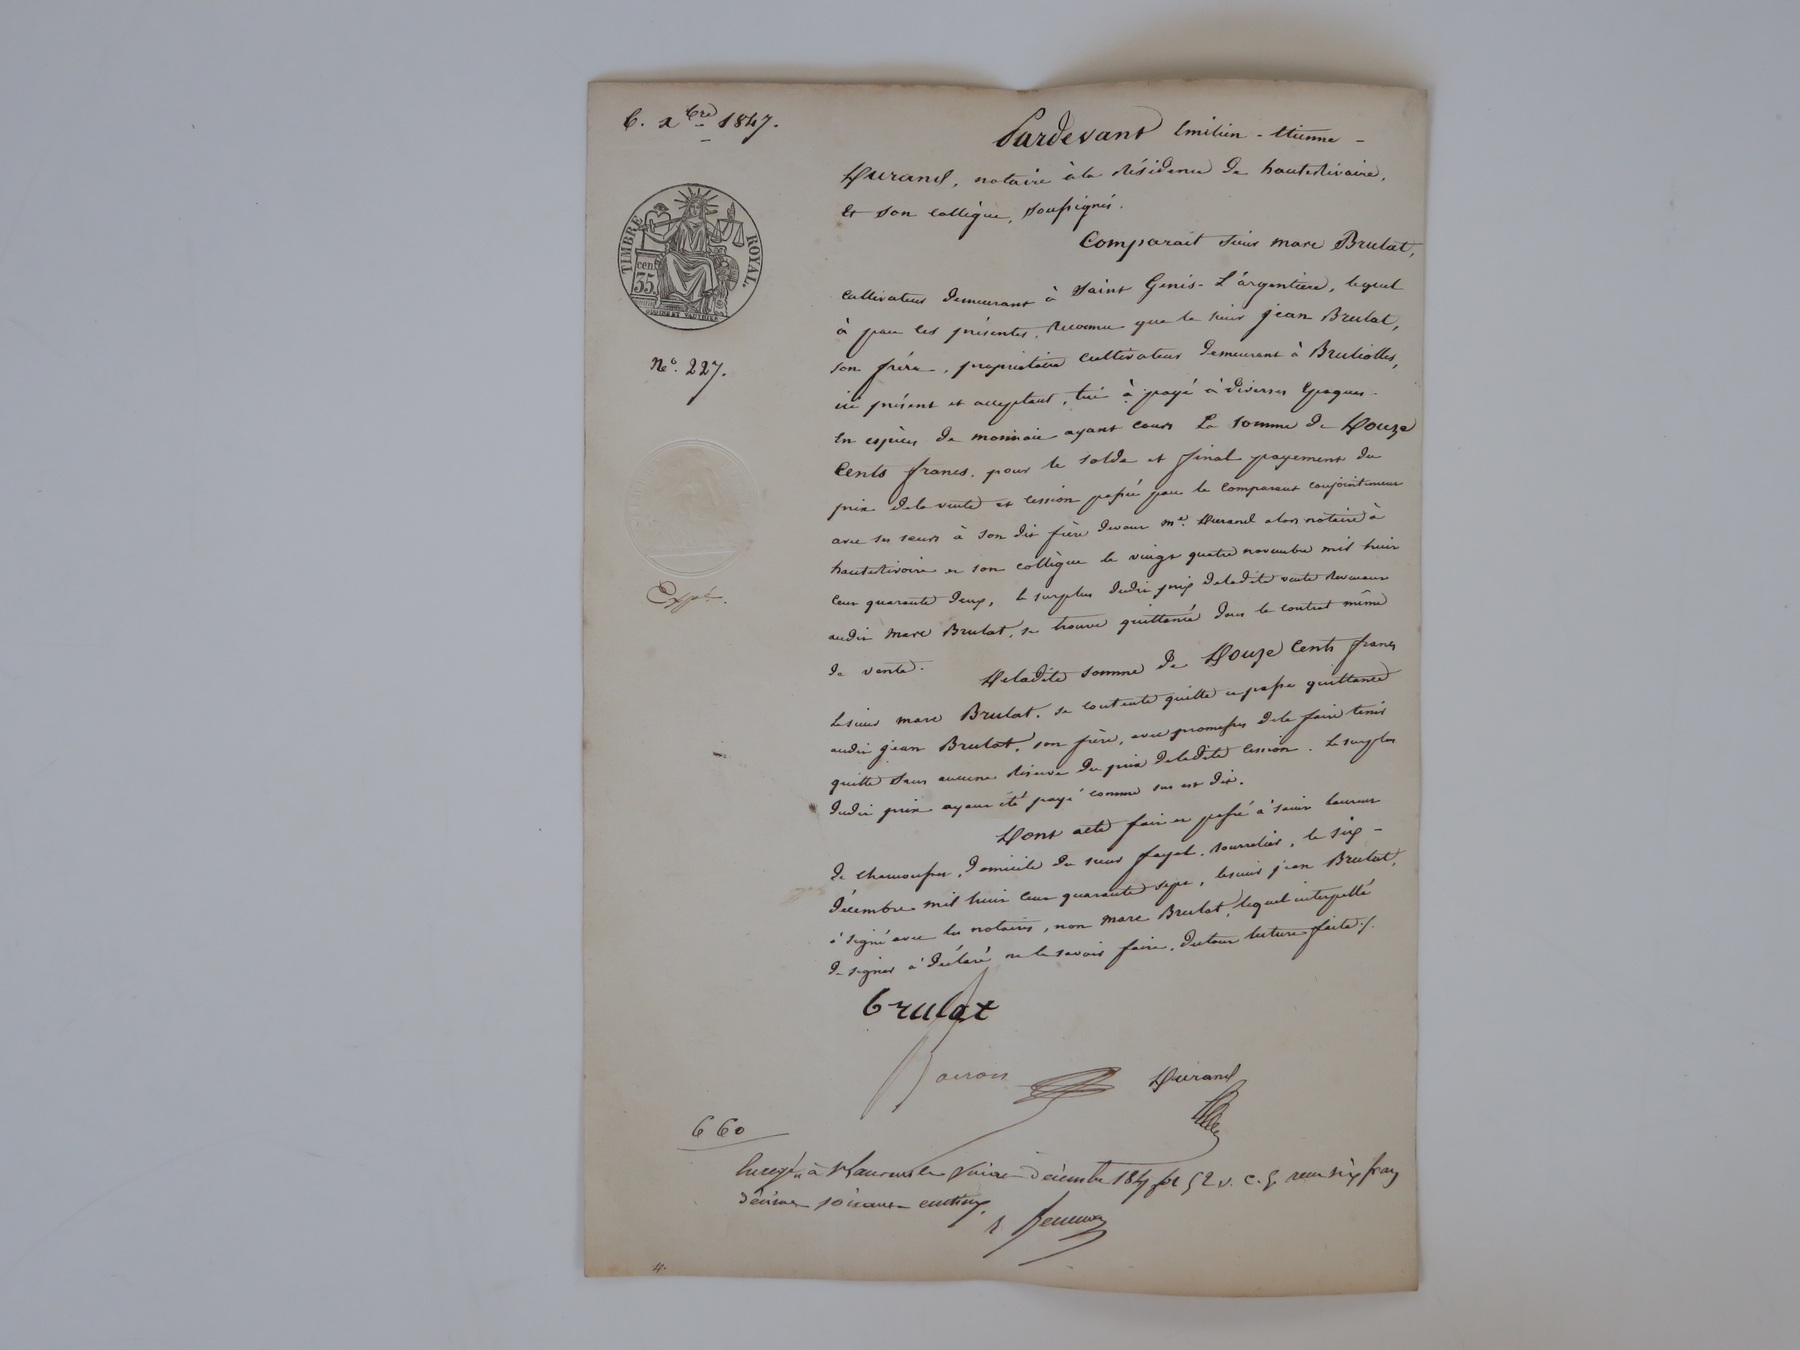 6. xbre 1847.
TIMBRE ROYAL.
cent
35.
Pardevant Emilien - Etienne -
Durand, notaire à la Résidence de hauterivoire,
Et son collègue, soussignés.
Comparait sieur marc Brulat,
cultivateur demeurant à Saint Genis - L'argentière, lequel
à par ces présentes, Reconnu que le sieur jean Brulat,
son frère, propriétaire cultivateur demeurant à Brulliolles,
ici présent et acceptant, lui à payé à diverses Epoques -
En espèces de monnaie ayant cours La somme de Douze
Cents francs, pour le solde et final payement du
prix dela vente et cession passée par le comparant conjointement
avec ses seurs à son dit frère devant me. Durand alors notaire à
hauterivoire et son collègue le vingt quatre novembre mil huit
cent quarante deux, le surplus dudit prix deladite vente Revenant
audit marc Brulat, se trouve quittancé dans le contrat même
de vente.
Deladite somme de Douze Cents francs
Lesieur marc Brulat, se contente quitte et passe quittance
audit jean Brulat, son frère, avec promesses dele faire tenir
quitte Sans aucune Réserve du prix deladite cession. Le surplus
dudit prix ayant été payé comme sus est dit.
Dont acte fait et passé à saint laurent
de chamousset, domicile du sieur fayet, bourrelier, le six -
décembre mil huit cent quarante sept, lesieur jean Brulat,
à signé avec les notaires, non marc Brulat, lequel interpellé
de signer à déclaré ne le savoir faire, dutout lecture faite ./.
No. 227.
Expte.
brulat
Durand
6 60
Enregé à St Laurent le décembre 1847 fo 52 v. c. 5 reçu six francs
décime soixante centimes.
4.